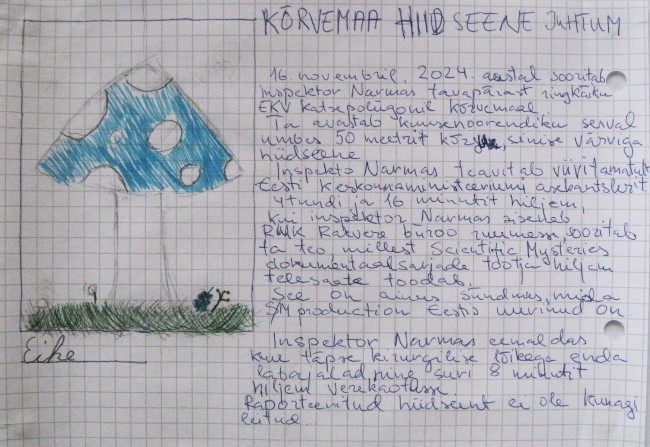 KÕRVEMAA HIID SEENE JUHTUM
16. novembril, 2024. aastal sooritab
inspektor Narmas tavapärast ringkäiku
EKV katsepolügonil Kõrvemaal.
Ta avastab kuusenoorendiku serval
umbes 50 meetrit kõrguse, sinise värviga
hiidseene
Inspekto Narmas teavitab viivitamatult
Eesti Keskonnaministeeriumi asekantslerit
4 tundi ja 16 minutit hiljem,
kui inspektor Narmas siseneb
RMK Rakvere büroo ruumesse, sooritab
ta teo, millest Scientific Mysteries
dokumentaalsarjade tootja hiljem
telesaate toodab.
See on ainus sündmus, mida
S/M production Eestis uurinud on.
Inspektor Narmas eemaldas
kahe täpse kirurgilise lõikega enda
labajalad ning suri 8 minutit
hiljem verekaotusse.
Raporteeritud hiidseent ei ole kunagi
leitud.
Eike